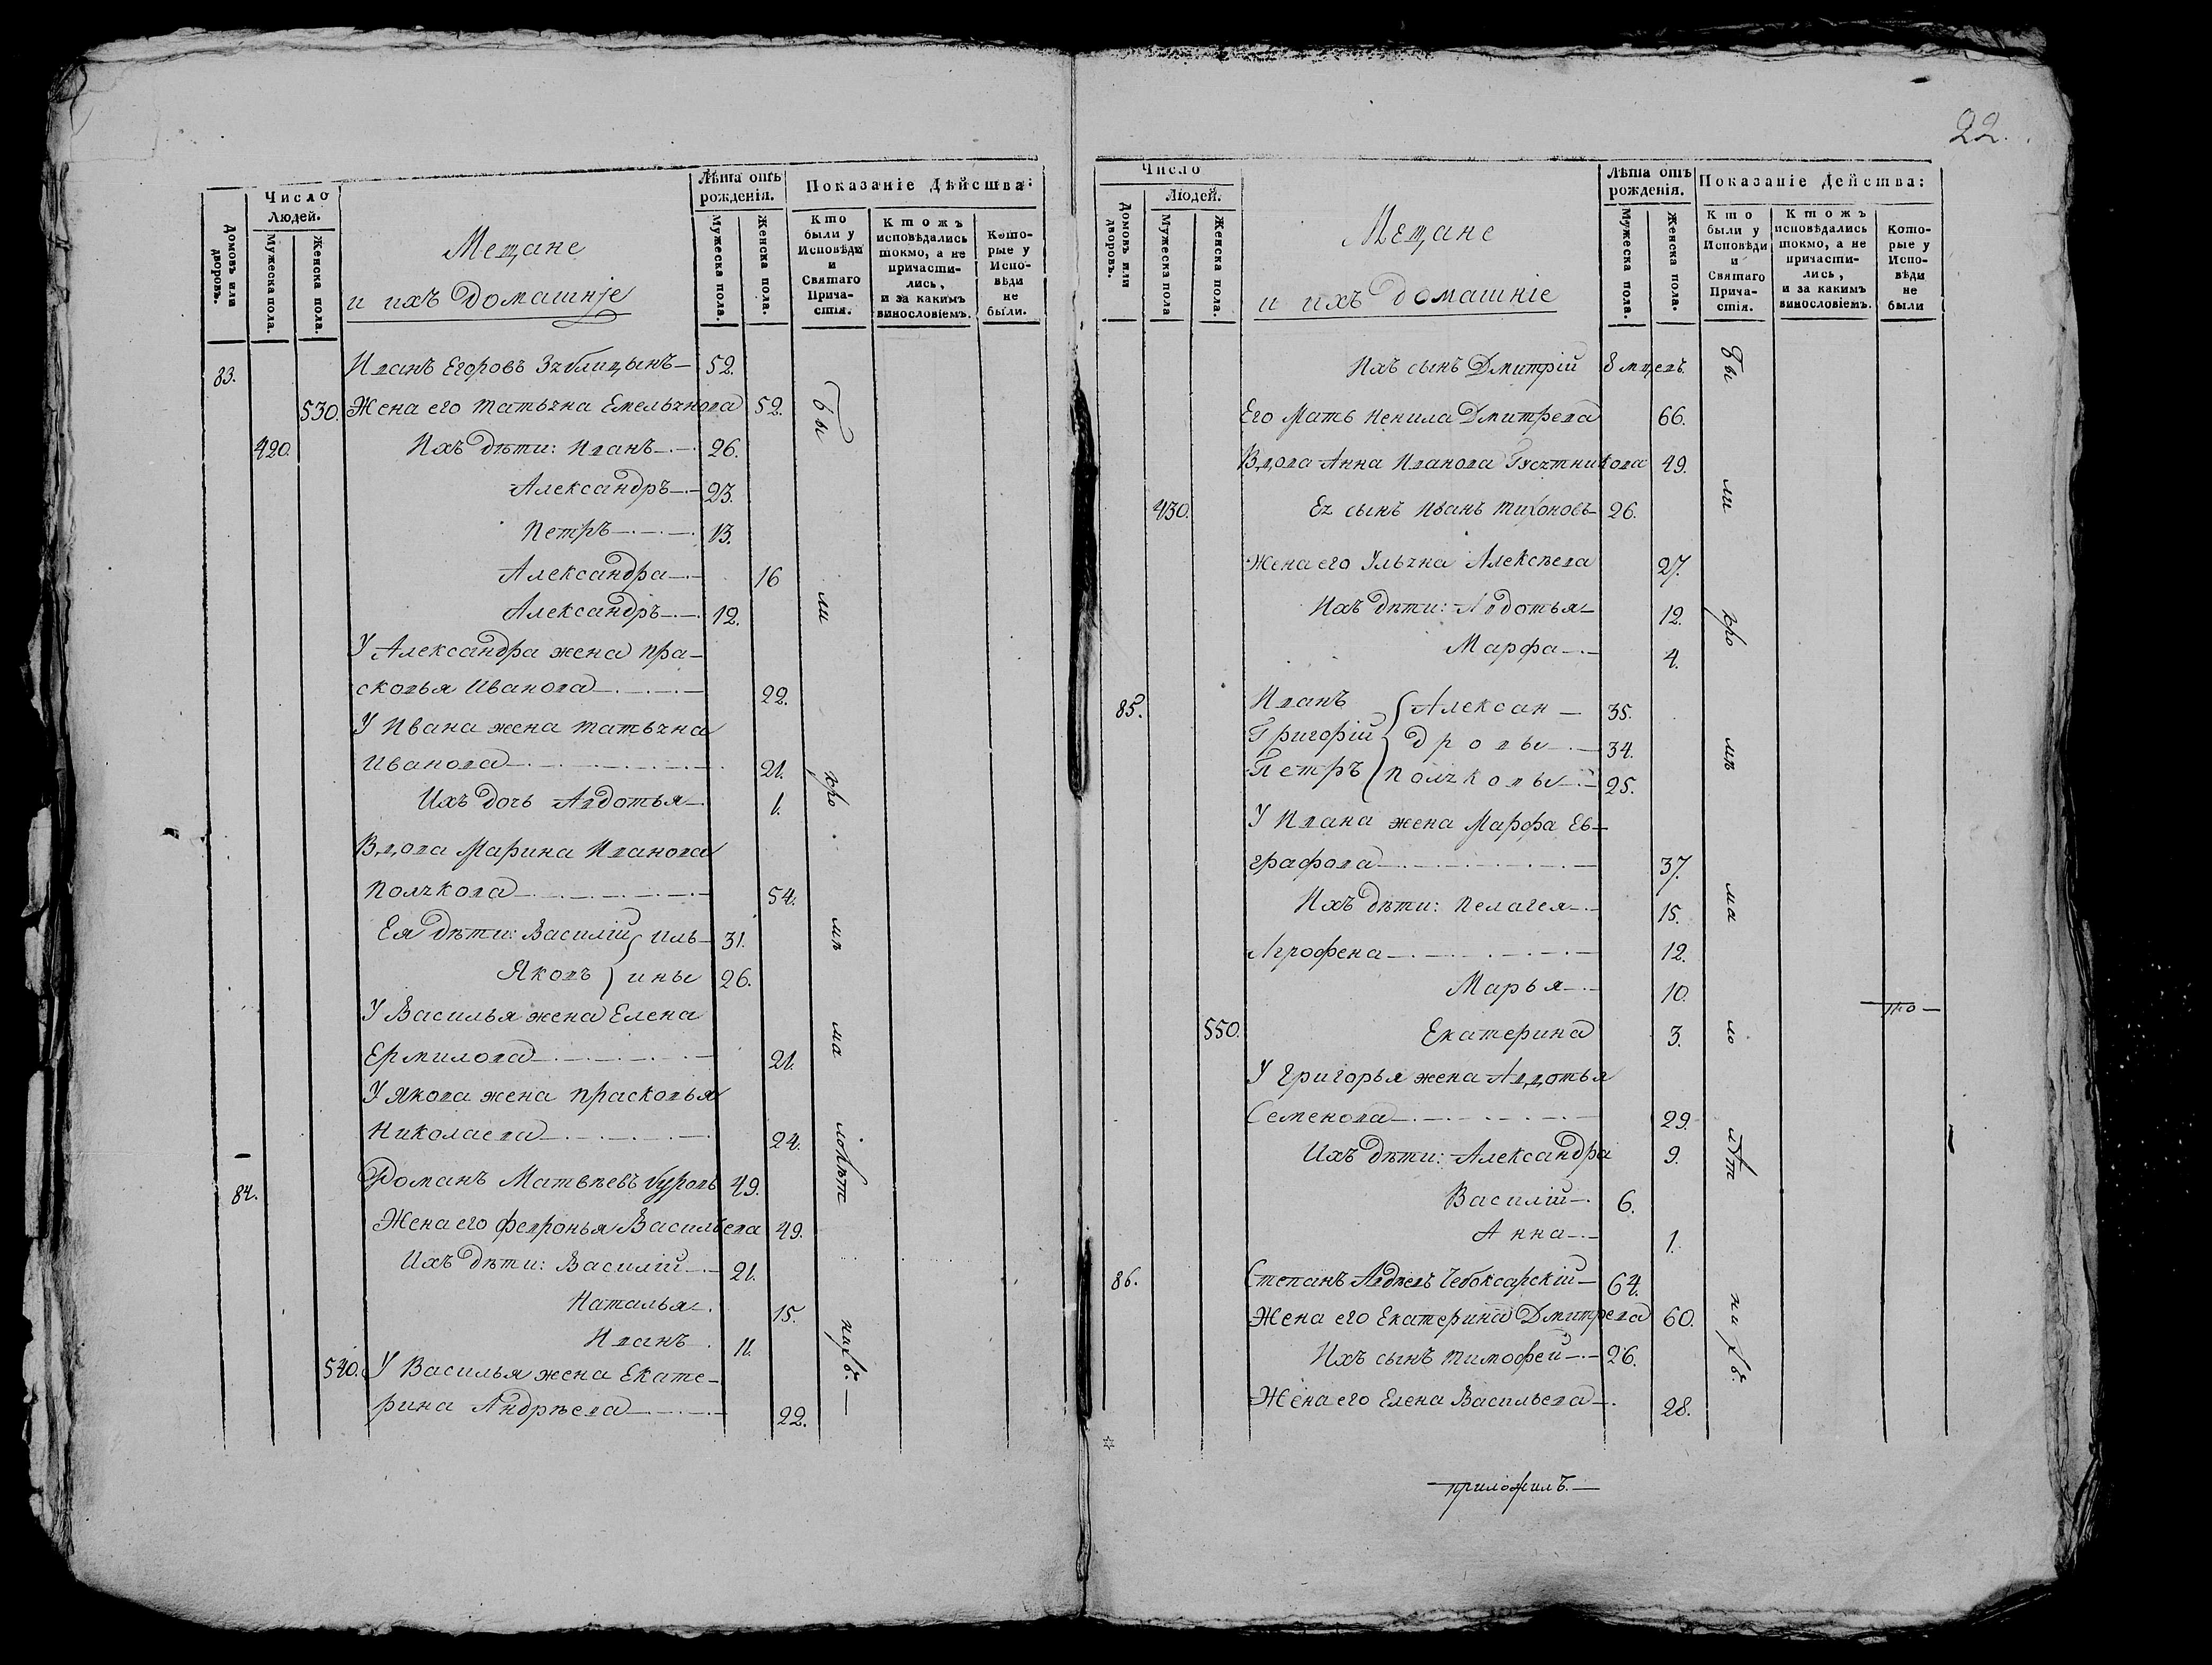 Домовъ или дворовъ.
Число Людей.
Мужеска пола.
Женска пола.
Мещане
и ихъ домашніе
Лѣта отъ рожденія.
Мужеска пола.
Женска пола.
Показаніе Дѣйства:
Кто были у Исповѣди и Святаго Прича- стія.
Ктожъ исповѣдались токмо, а не причасти- лись, и за какимъ винословіемъ.
Кото- рые у Испо- вѣди не были.
83. Иванъ Егоровъ 52.
530. Жена его Татьяна Емельянова 52.
420. Ихъ дѣти: Иванъ 26.
Александръ 23.
Петръ 13.
Александра 16
Александръ 12.
У Александра жена Пра-
сковья Иванова 22.
У Ивана жена Татьяна
Иванова 21.
Ихъ дочь Авдотья 1.
Вдова Марина Иванова
Полякова 54.
Ея дѣти: Василій Иль- 31.
Яковъ ины 26.
У Василья жена Елена
Ермилова 21.
У Якова жена Прасковья
Николаева 24.
84. Романъ Матвѣевъ Буровъ 49.
Жена его Февронья Васильева 49.
Ихъ дѣти: Василій 21.
Наталья 15.
Иванъ 11.
540. У Василья жена Екате-
рина Андрѣева 22.
бы
ли
кро
мѣ
ма
лолѣт
нихъ.
22.
Домовъ или дворовъ.
Число
Людей.
Мужеска пола
Женска пола.
Мещане
и ихъ домашніе
Лѣта отъ рожденія.
Мужеска пола.
Женска пола.
Показаніе Действа:
Кто были у Исповѣди и Святаго Прича- стія.
Ктожъ исповѣдались токмо, а не причасти- лись, и за какимъ винословіемъ.
Кото- рые у Испо- вѣди не были
Ихъ сынъ Дмитрій 8 мцевъ.
Его Мать Ненила Дмитрева 66.
Вдова Анна Иванова Гусятникова 49.
430. Ея сынъ Иванъ Тихоновъ 26.
Жена его Ульяна Алексѣева 27.
Ихъ дѣти: Авдотья 12.
Марфа 4.
85. Иванъ Алексан 35.
Григорій дровы 34.
Петръ Поляковы 25.
У Ивана жена Марфа Ев-
графова 37.
Ихъ дѣти: Пелагея 15.
Агрофена 12.
Марья 10.
550. Екатерина 3.
У Григорья жена Авдотья
Семенова 29.
Ихъ дѣти: Александра 9.
Василій 6.
Анна 1.
86. Степанъ Авдѣевъ Чебоксарскій 64.
Жена его Екатерина Дмитрева 60.
Ихъ сынъ Тимофей 26.
Жена его Елена Васильева 28.
бы
ли
кро
мѣ
ма
ло
лѣт
нихъ.
приложилъ.